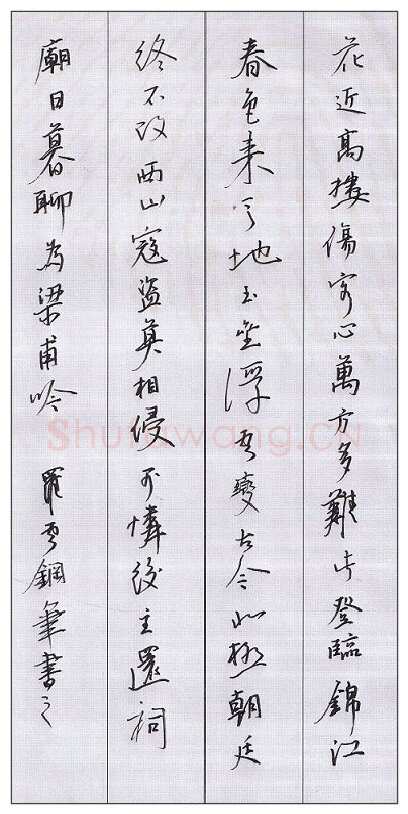 花近高樓傷客心萬方多難此登臨錦江
春色来天地玉壘浮雲變古今北極朝廷
終不改西山寇盜莫相侵可憐後主還祠
廟日暮聊為梁甫吟 雲鋼筆書之
Shufawang.CN